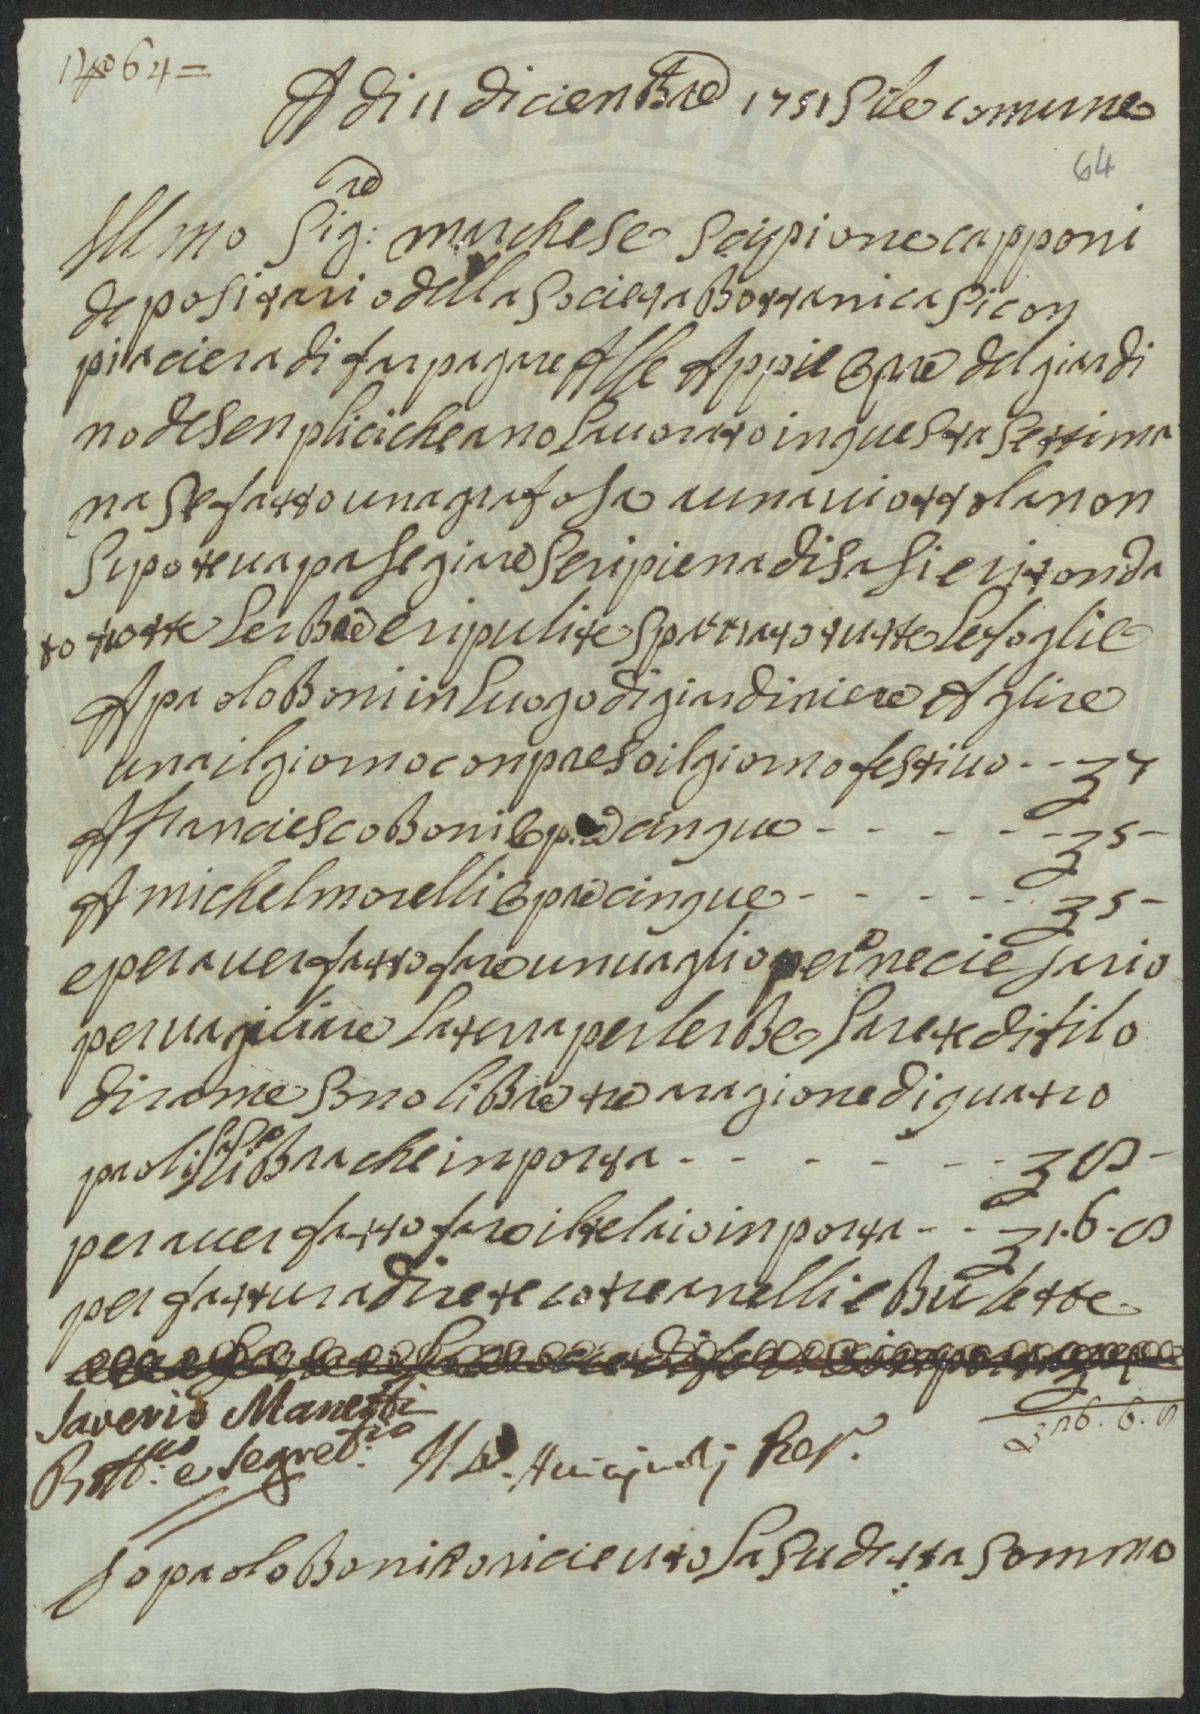 A di 11 dicienbre 1751 Stile comune
64
Ill mo Sig:re marchese Scipione capponi
depositario della Societa Bottanica Si con
piaciera di far pagare Alle Appie Opre del giardi
no de Senplici che ano Lauorato in questa Settima
na Se fatto una gra fosa a una uiottola non
Si poteua pasegiare Se ripiena di Sasi e ritonda
to tutte Lerbe e ripulite Spazzato tutte Le foglie
A paolo Boni in Luogo di giardiniere A glire
una il giorno conpreso il giorno festiuo - - 7
A Franciesco Boni Opre cinque - - - - - 5 -
A michel morelli Opre cinque - - - - - 5 -
e per auer fatto fare un uaglio per necie sario
per uagliare La terra per lerbe La rete di filo
di rame Sono libre tre a ragione di quatro
paoli la libra che inporta - - - - - - 8 -
per auer fatto fare il telaio inporta - - 1.6.8
per fattura di rete co tre anelli e Bulette
26.6.8
Saverio Manetti
Bott:co e Segret:rio
Rev.
Io paolo Boni o riceuto La Sudetta Somma